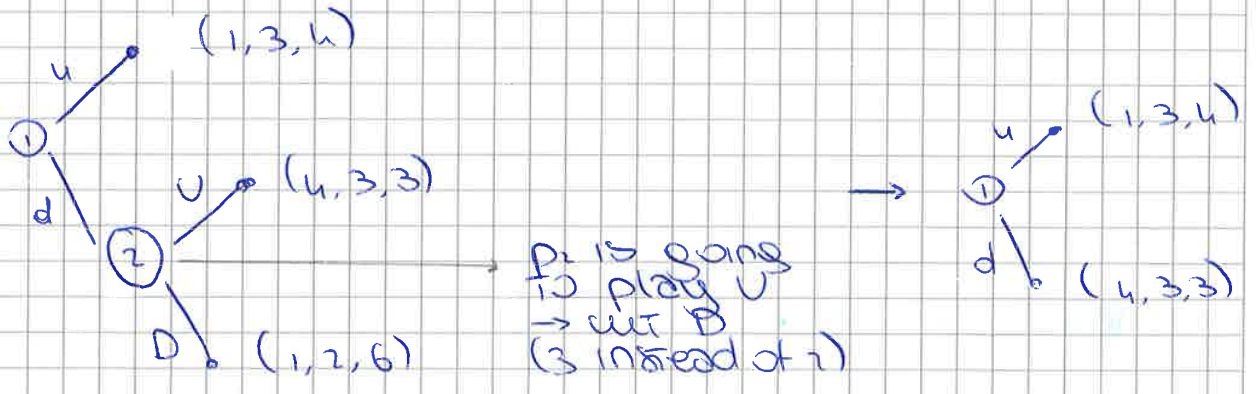 (1, 3, 4)
u
1
d
U
(4, 3, 3)
2
D
(1, 2, 6)
P2 is going
to play U
→ cut D
(3 instead of 2)
→
u
(1, 3, 4)
1
d
(4, 3, 3)